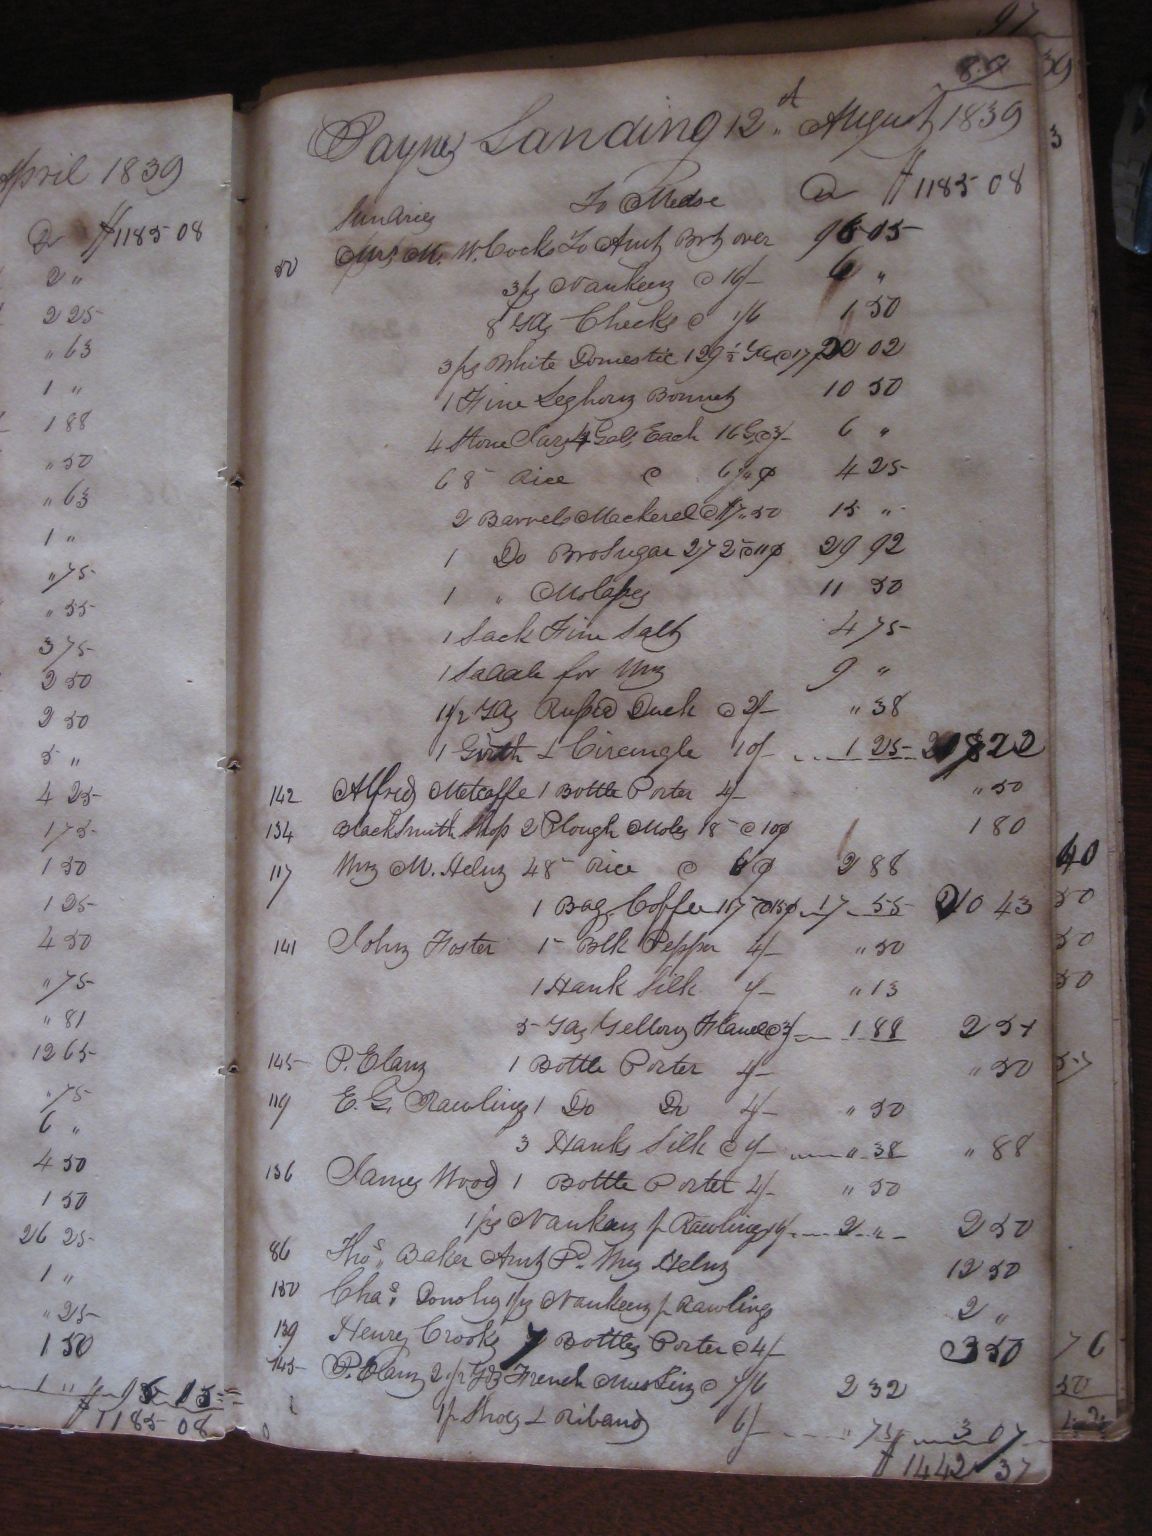 April 1839
Dr $1185 08
2 "
2 25
" 63
1 "
1 88
" 50
" 63
1 "
" 75
" 55
3 75
2 50
2 50
5 "
4 25
1 75
1 50
1 25
4 50
" 75
" 81
12 65
" 75
6 "
4 50
1 50
26 25
1 "
" 25
1 50
1 " 15
$1185 08
97
89
Paynes Landing 12th August 1839
Sundries To Mdse Dr $1185 08
50 Mrs M. W. Cocks To Amt Brt over 96 05
3 ps Nankeen @ 16/- 6 "
8 Yds Checks @ 1/6 1 50
3 ps White Domestic 129½ Yds @ 17 22 02
1 Fine Leghorn Bonnet 10 50
4 Stone Jars 4 Gals Each 16 G @ 3/- 6 "
68 Rice @ 6¼ ¢ 4 25
2 Barrels Mackerel @ $7.50 15 "
1 Do Bro Sugar 272 @ 11¢ 29 92
1 " Molasses 11 50
1 Sack Fine Salt 4 75
1 Saddle for Wm 9 "
1½ Yds Russia Duck @ 2/- " 38
1 Girth & Circingle 10/- 1 25 218 22
142 Alfred Metcalfe 1 Bottle Porter 4/- " 50
134 Blacksmith Shop 2 Plough Moles 18 @ 10¢ 1 80
117 Wm M. Helm 48 Rice @ 6 ¢ 2 88
1 Bag Coffee 117 @ 15¢ 17 55 20 43
141 John Foster 1 Blk Pepper 4/- " 50
1 Hank Silk 1/- " 13
5 Yds Yellow Flanel @ 3/- 1 88 2 51
145 P. Elam 1 Bottle Porter 4/- " 50
119 E. G. Rawlings 1 Do Do 4/- " 50
3 Hanks Silk @ 1/- " 38 " 88
136 James Wood 1 Bottle Porter 4/- " 50
1 ps Nankeen p Rawlings 16/- 2 " 2 50
86 Thos. Baker Amt Pd. Wm Helm 12 50
150 Chas. Donohy 1 ps Nankeen p Rawlings 2 "
139 Henry Crooks 7 Bottles Porter @ 4/- 3 50
145 P. Elam 2½ Yds French Muslin @ 7/6 2 32
1 p Shoes & Riband 6/- " 75 3 07
$1442 37
39
3
40
50
50
50
76
50